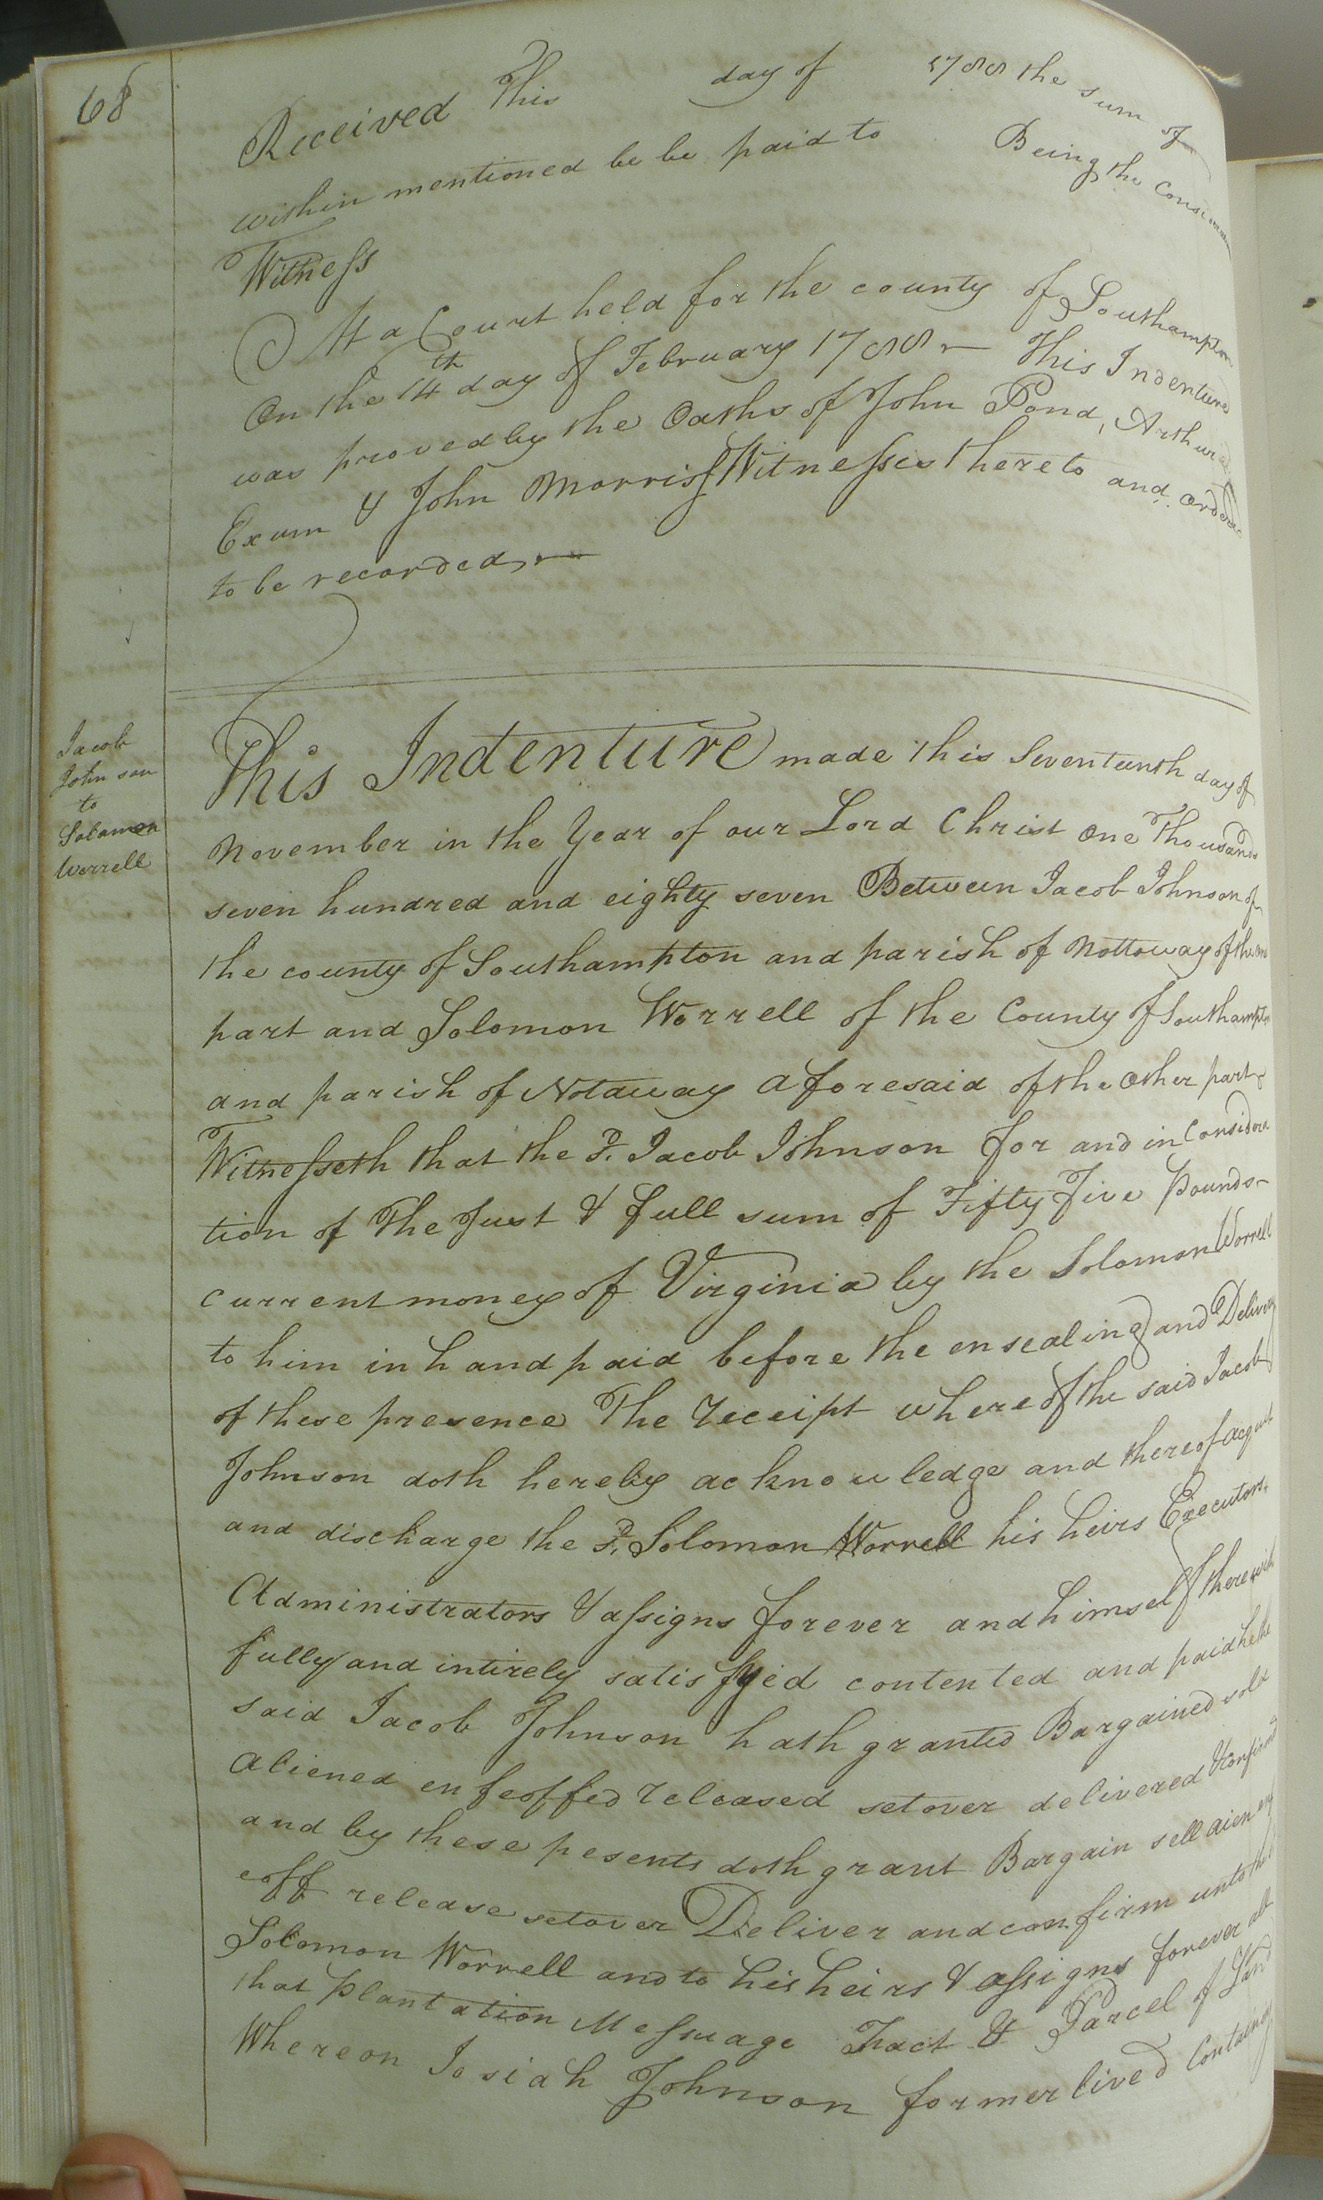 68
Received This day of 1788 the sum of
within mentioned be be paid to Being the
Witness
At a Court held for the county of Southampton
On the 14th day of February 1788 This Indenture
was proved by the Oaths of John Pond, Arthur
Exum & John Morriss Witnesses thereto and
to be recorded
Jacob
Johnson
to
Solomon
Worrell
This Indenture made this Seventeenth day of
November in the Year of our Lord Christ One Thousand
seven hundred and eighty seven Between Jacob Johnson of
the county of Southampton and parish of Nottoway of the one
part and Solomon Worrell of the County of Southampton
and parish of Notaway aforesaid of the other part
Witnesseth that the sd. Jacob Johnson for and in Considera
tion of The Just & full sum of Fifty Five Pounds
current money of Virginia by the Solomon Worrell
to him in hand paid before the ensealing and Delivery
of these presence The receipt where of the said Jacob
Johnson doth hereby acknowledge and thereof acquit
and discharge the sd. Solomon Worrell his heirs Executors,
Administrators & assigns forever and himself therewith
fully and intirely satisfyed contented and paid he the
said Jacob Johnson hath granted Bargained sold
aliened enfeoffed released setover delivered & confirmed
and by these pesents doth grant Bargain sell aien enf
eoff release setover Deliver and confirm unto the
Solomon Worrell and to his heirs & assigns forever all
that plantation Messuage Tract & Parcel of Land
Whereon Josiah Johnson former lived Containing